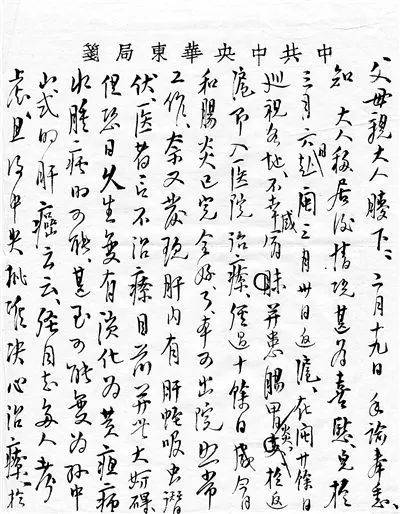 中共中央華東局箋
父母親大人膝下：二月十九日手諭奉悉、
知 大人移居後情況甚為喜慰。兒於
三月六日赴閩三月卅日返滬、在閩廿餘日
巡視各地、不幸感冒并患腸胃炎於返
滬即入医院治療、经過十餘日感冒
和腸炎已完全好了、本可出院照常
工作、奈又發現肝内有肝蛭吸虫潛
伏、医者言不治療目前并無大妨碍
但恐日久生變有演化為黄疸病
水腫病的可能、甚至可能變為孫中
山式的肝癌云云、经同志多人考
慮、且得中央批准决心治療、於